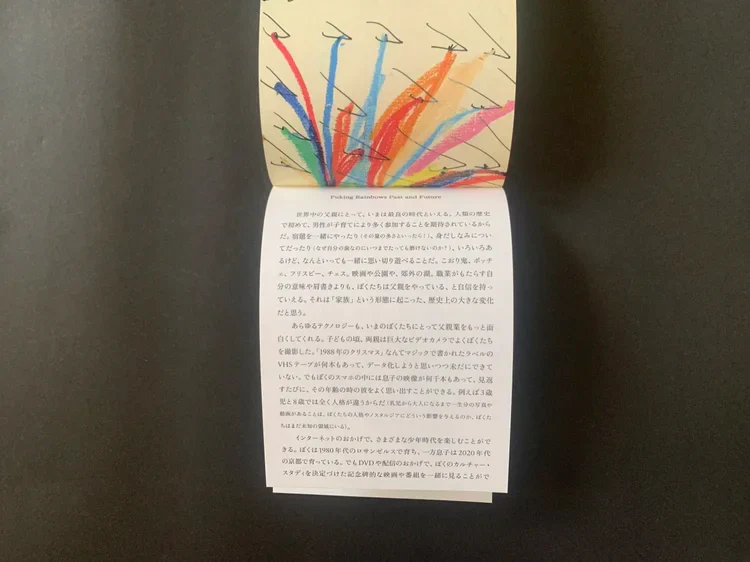 Puking Rainbows Past and Future
世界中の父親にとって、いまは最良の時代といえる。人類の歴史
で初めて、男性が子育てにより多く参加することを期待されているから
だ。宿題を一緒にやったり(その量の多さといったら!)、身だしなみについ
てだったり(なぜ自分の歯なのにいつまでたっても磨けないのか?)、いろいろあ
るけど、なんといっても一緒に思い切り遊べることだ。こおり鬼、ボッチ
ェ、フリスビー、チェス。映画や公園や、郊外の湖。職業がもたらす自
分の意味や肩書きよりも、ぼくたちは父親をやっている、と自信を持っ
ていえる。それは「家族」という形態に起こった、歴史上の大きな変化
だと思う。
あらゆるテクノロジーも、いまのぼくたちにとって父親業をもっと面
白くしてくれる。子どもの頃、両親は巨大なビデオカメラでよくぼくたち
を撮影した。「1988年のクリスマス」なんてマジックで書かれたラベルの
VHSテープが何本もあって、データ化しようと思いつつ未だにできて
いない。でもぼくのスマホの中には息子の映像が何千本もあって、見返
すたびに、その年齢の時の彼をよく思い出すことができる。例えば3歳
児と8歳では全く人格が違うからだ(乳児から大人になるまで一生分の写真や
動画があることは、ぼくたちの人格やノスタルジアにどういう影響を与えるのか、ぼくた
ちはまだ未知の領域にいる)。
インターネットのおかげで、さまざまな少年時代を楽しむことがで
きる。ぼくは1980年代のロサンゼルスで育ち、一方息子は2020年代
の京都で育っている。でもDVDや配信のおかげで、ぼくのカルチャー・
スタディを決定づけた記念碑的な映画や番組を一緒に見ることがで